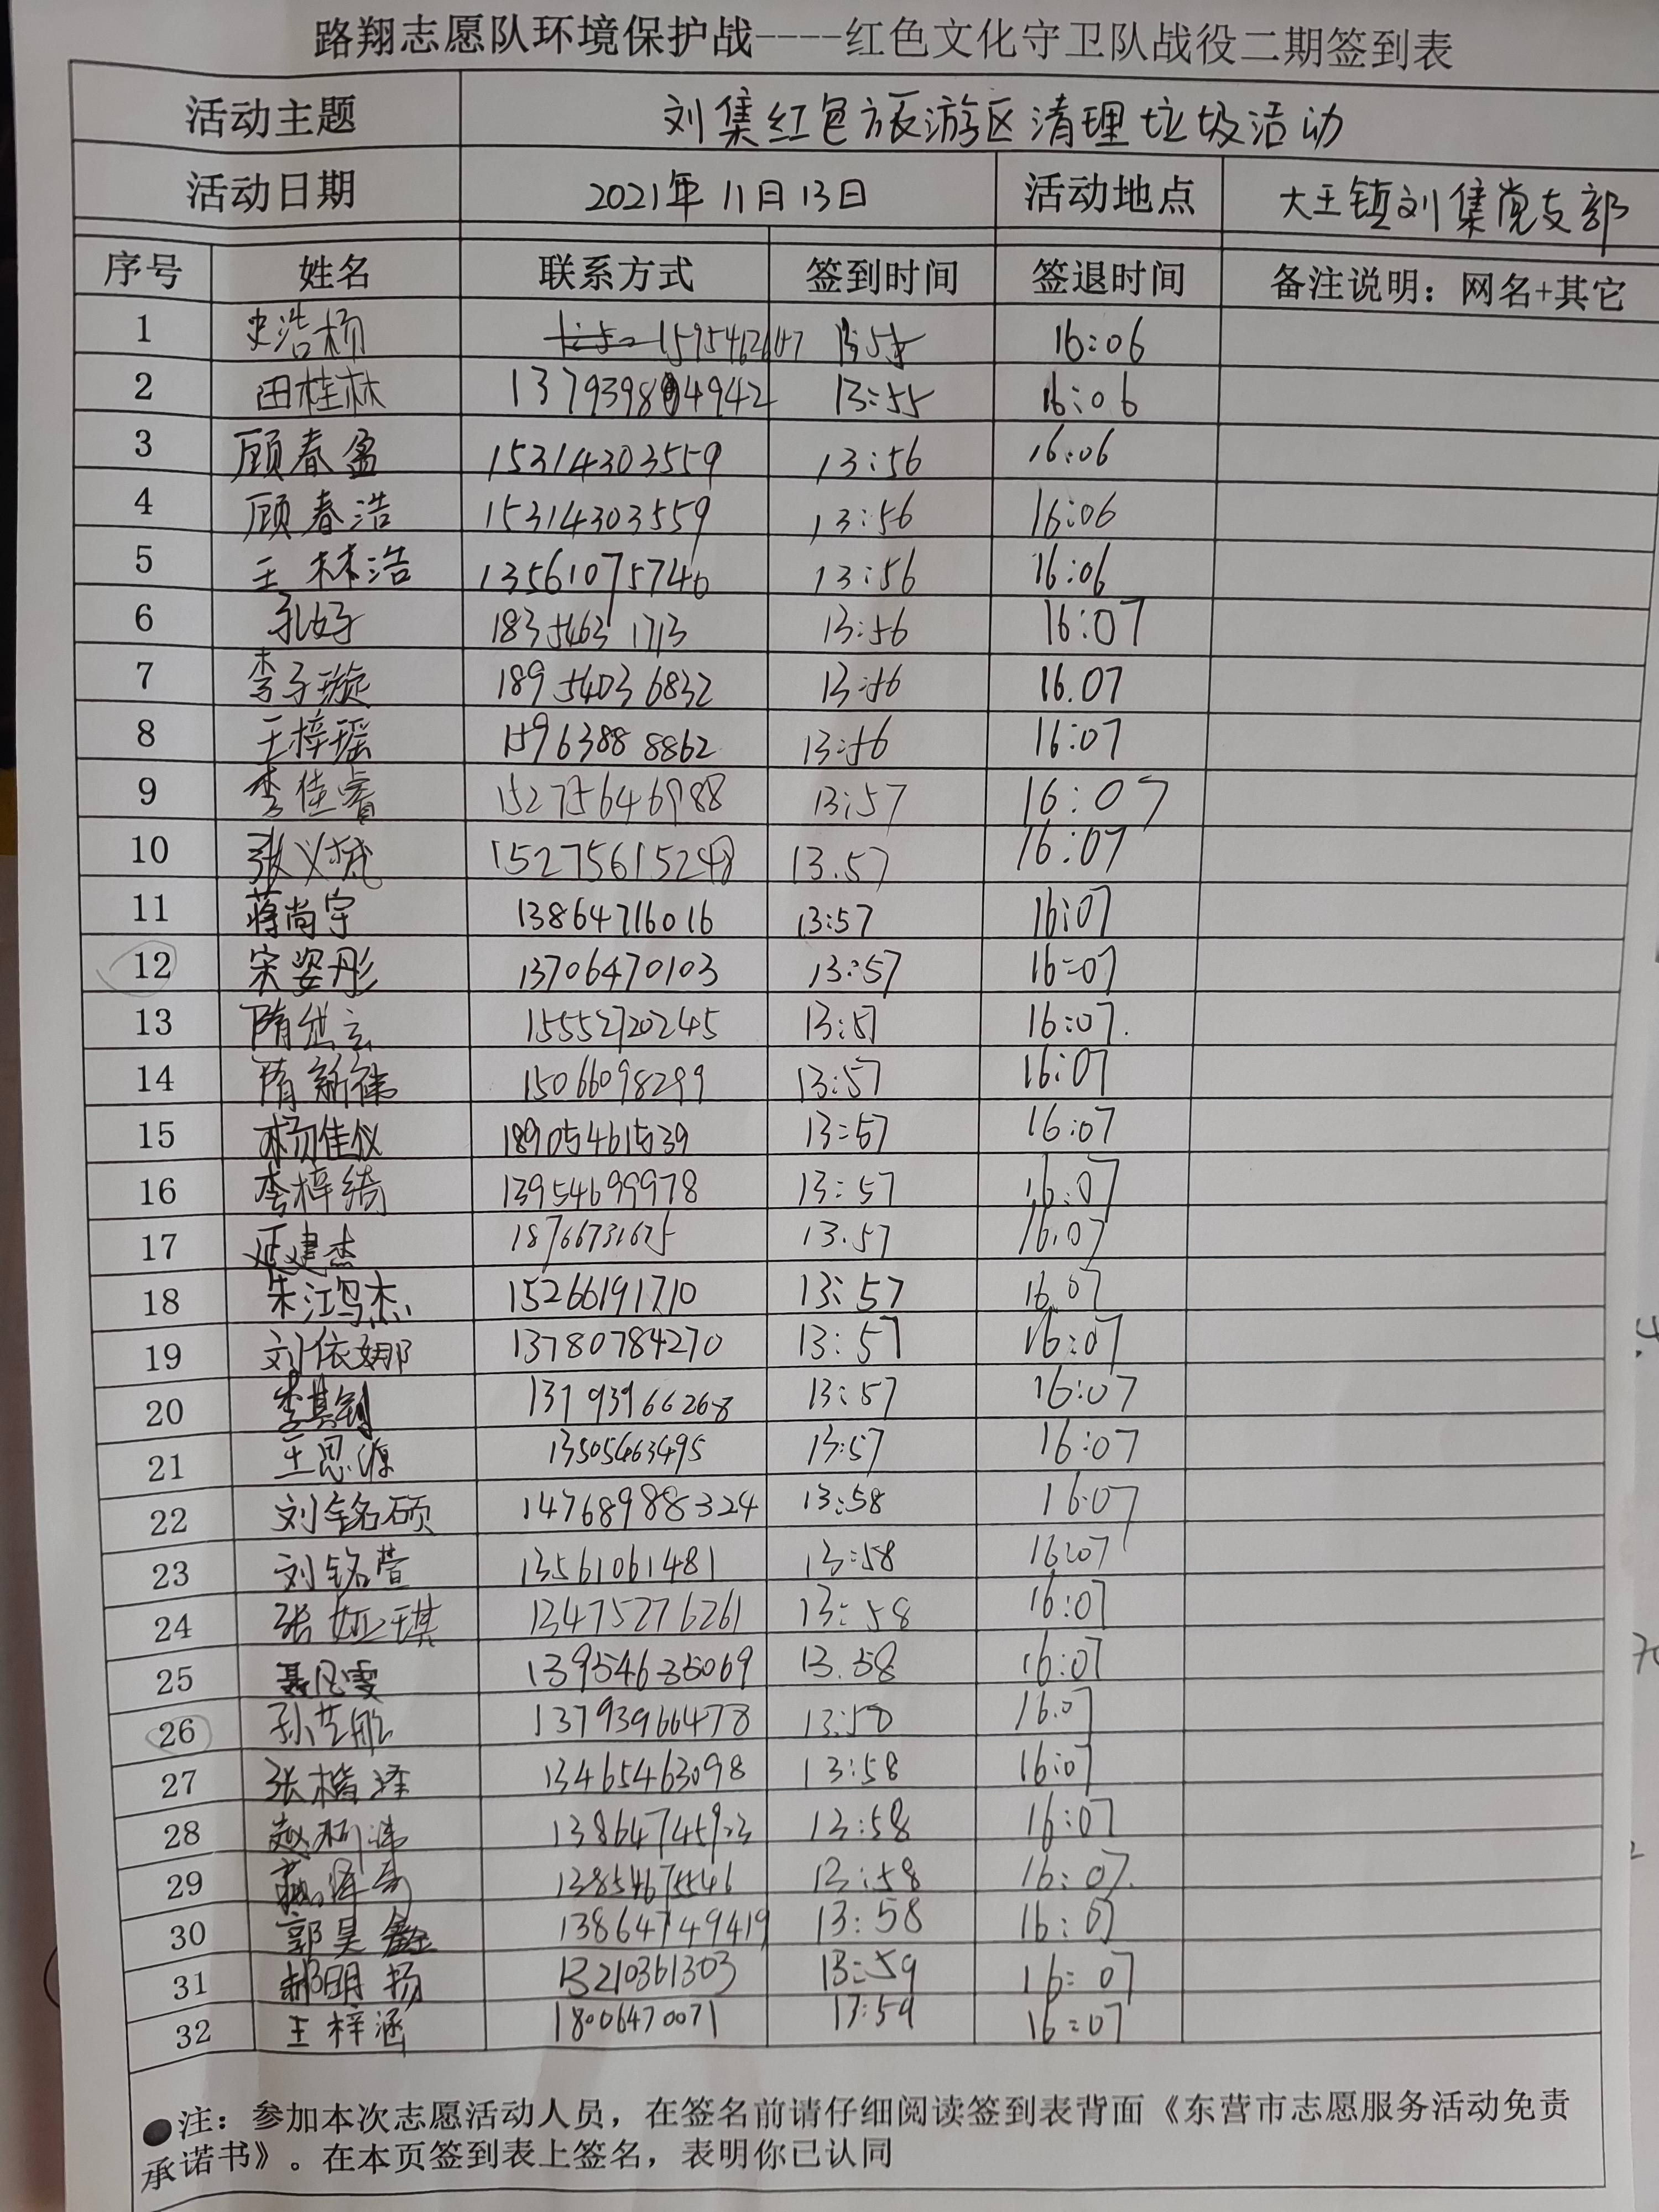 路翔志愿队环境保护战----红色文化守卫队战役二期签到表
活动主题 刘集红色旅游区清理垃圾活动
活动日期 2021年11月13日 活动地点 大王镇刘集党支部
序号 姓名 联系方式 签到时间 签退时间 备注说明：网名+其它
1 史浩杨 13:55 16:06
2 田桂林 13:55 16:06
3 顾春盈 15314303559 13:56 16:06
4 顾春浩 15314303559 13:56 16:06
5 王林浩 13561075746 13:56 16:06
6 孔好 18354631713 13:56 16:07
7 李子璇 18954036832 13:56 16.07
8 王梓瑶 15963888862 13:56 16:07
9 李佳睿 15275646988 13:57 16:07
10 张义 15275615248 13.57 16:07
11 蒋尚宇 13864716016 13:57 16:07
12 宋姿彤 13706470103 13:57 16:07
13 隋 15552720245 13:57 16:07.
14 隋新 15066098299 13:57 16:07
15 杨佳仪 18905461539 13:57 16:07
16 李梓绮 13954699978 13:57 16:07
17 延建杰 18766731675 13.57 16.07
18 朱江鸿杰 15266191710 13:57 16.07
19 刘依娜 13780784270 13:57 16:07
20 李其钊 13793966268 13:57 16:07
21 王思源 13505463495 13:57 16:07
22 刘铭硕 14768988324 13:58 16:07
23 刘铭萱 13561061481 13:58 16:07
24 张娅琪 13475276261 13:58 16:07
25 聂凡雯 13954635069 13.58 16:07
26 孙艺航 13793966478 13:58 16.07
27 张楷泽 13465463098 13:58 16:07
28 赵 13:58 16:07
29 13854675546 13:58 16:07.
30 郭昊鑫 13864749419 13:58 16:07
31 郝明扬 13210361303 13:59 16:07
32 王梓涵 18006470071 13:59 16:07
●注：参加本次志愿活动人员，在签名前请仔细阅读签到表背面《东营市志愿服务活动免责
承诺书》。在本页签到表上签名，表明你已认同